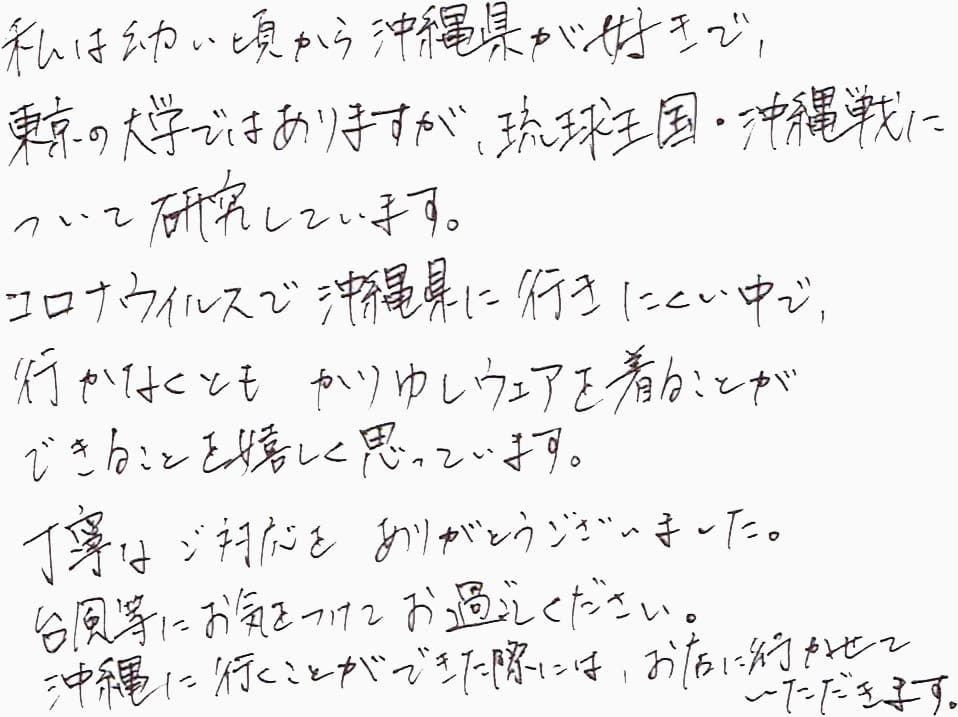 私は幼い頃から沖縄県が好きで,
東京の大学ではありますが、琉球王国・沖縄戦に
ついて研究しています。
コロナウイルスで沖縄県に行きにくい中で,
行かなくとも かりゆしウェアを着ることが
できることを嬉しく思っています。
丁寧なご対応を ありがとうございました。
台風等にお気をつけてお過ごしください。
沖縄に行くことができた際には、お店に行かせて
いただきます。